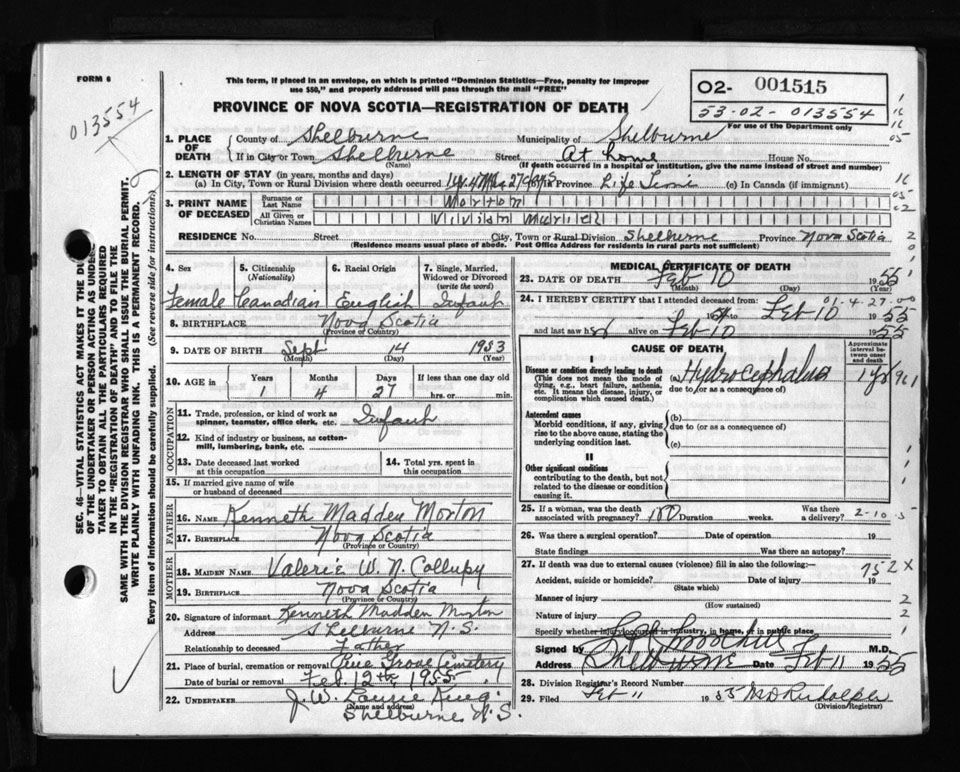 FORM 6
This form, if placed in an envelope, on which is printed "Dominion Statistics—Free, penalty for improper
use $50," and properly addressed will pass through the mail "FREE"
PROVINCE OF NOVA SCOTIA—REGISTRATION OF DEATH
O2- 001515
53-02-013554
For use of the Department only
013554
SEC. 46—VITAL STATISTICS ACT MAKES IT THE DU
OF THE UNDERTAKER OR PERSON ACTING AS UNDER
TAKER TO OBTAIN ALL THE PARTICULARS REQUIRED
IN THE "REGISTRATION OF DEATH" AND TO FILE THE
SAME WITH THE DIVISION REGISTRAR WHO SHALL ISSUE THE BURIAL PERMIT.
WRITE PLAINLY WITH UNFADING INK. THIS IS A PERMANENT RECORD.
Every item of Information should be carefully supplied. (See reverse side for instructions)
1. PLACE OF DEATH
County of Shelburne Municipality of Shelburne
If in City or Town Shelburne Street At home House No.
(Name) (If death occurred in a hospital or institution, give the name instead of street and number)
2. LENGTH OF STAY (in years, months and days)
(a) In City, Town or Rural Division where death occurred 1 yr. 4 Mos 27 days In Province Life Time (c) In Canada (if immigrant)
3. PRINT NAME OF DECEASED
Surname or Last Name Morton
All Given or Christian Names Vivian Muriel
RESIDENCE No. Street City, Town or Rural Division Shelburne Province Nova Scotia
(Residence means usual place of abode. Post Office Address for residents in rural parts not sufficient)
4. Sex Female
5. Citizenship (Nationality) Canadian
6. Racial Origin English
7. Single, Married, Widowed or Divorced (write the word) Infant
8. BIRTHPLACE Nova Scotia
(Province or Country)
9. DATE OF BIRTH Sept 14 1953
(Month) (Day) (Year)
10. AGE in Years 1 Months 4 Days 27 If less than one day old hrs. or min.
OCCUPATION
11. Trade, profession, or kind of work as
spinner, teamster, office clerk, etc. Infant
12. Kind of industry or business, as cotton-
mill, lumbering, bank, etc.
13. Date deceased last worked
at this occupation
14. Total yrs. spent in
this occupation
15. If married give name of wife
or husband of deceased
FATHER
16. NAME Kenneth Madden Morton
17. BIRTHPLACE Nova Scotia
(Province or Country)
MOTHER
18. MAIDEN NAME Valerie W. N. Collupy
19. BIRTHPLACE Nova Scotia
(Province or Country)
20. Signature of informant Kenneth Madden Morton
Address Shelburne N.S.
Relationship to deceased Father
21. Place of burial, cremation or removal Pine Grove Cemetery
Date of burial or removal Feb. 12th 1955
22. UNDERTAKER J. W.
(Name and address)
Shelburne N.S.
MEDICAL CERTIFICATE OF DEATH
23. DATE OF DEATH Feb 10 1955
(Month) (Day) (Year)
01-4-27-00
24. I HEREBY CERTIFY that I attended deceased from:
19 Feb 10 1955
and last saw her alive on Feb 10 1955
CAUSE OF DEATH
Approximate interval between onset and death
I
Disease or condition directly leading to death
(This does not mean the mode of
dying, e.g., heart failure, asthenia,
etc. It means the disease, injury, or
complication which caused death.)
(a) Hydrocephalus 1 yr
due to (or as a consequence of)
Antecedent causes
Morbid conditions, if any, giving
rise to the above cause, stating the
underlying condition last.
(b)
due to (or as a consequence of)
(c)
II
Other significant conditions
contributing to the death, but not
related to the disease or condition
causing it.
25. If a woman, was the death
associated with pregnancy? no Duration weeks. Was there
a delivery? 2-10-5
26. Was there a surgical operation? Date of operation 19
State findings Was there an autopsy?
27. If death was due to external causes (violence) fill in also the following:—
752X
Accident, suicide or homicide? Date of injury 19
(State which)
Manner of injury
(How sustained)
Nature of injury
Specify whether injury occurred in industry, in home, or in public place
Signed by M.D.
Address Shelburne Date Feb 11 1955
28. Division Registrar's Record Number
29. Filed Feb 11 1955 M D Rudolph
(Division Registrar)